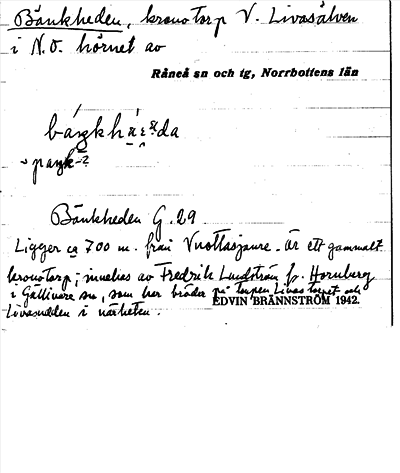 Bänkheden, kronotorp V. Livasälven
i N.O. hörnet av
Råneå sn och tg, Norrbottens län
Bänkheden G. 29
Ligger ca 700 m. från Vuottasjaure. Är ett gammalt
kronotorp; innehas av Fredrik Lundström f. Hornberg
i Gällivare sn, som har bröder på torpen Livas torpet och
EDVIN BRÄNNSTRÖM 1942.
i närheten.